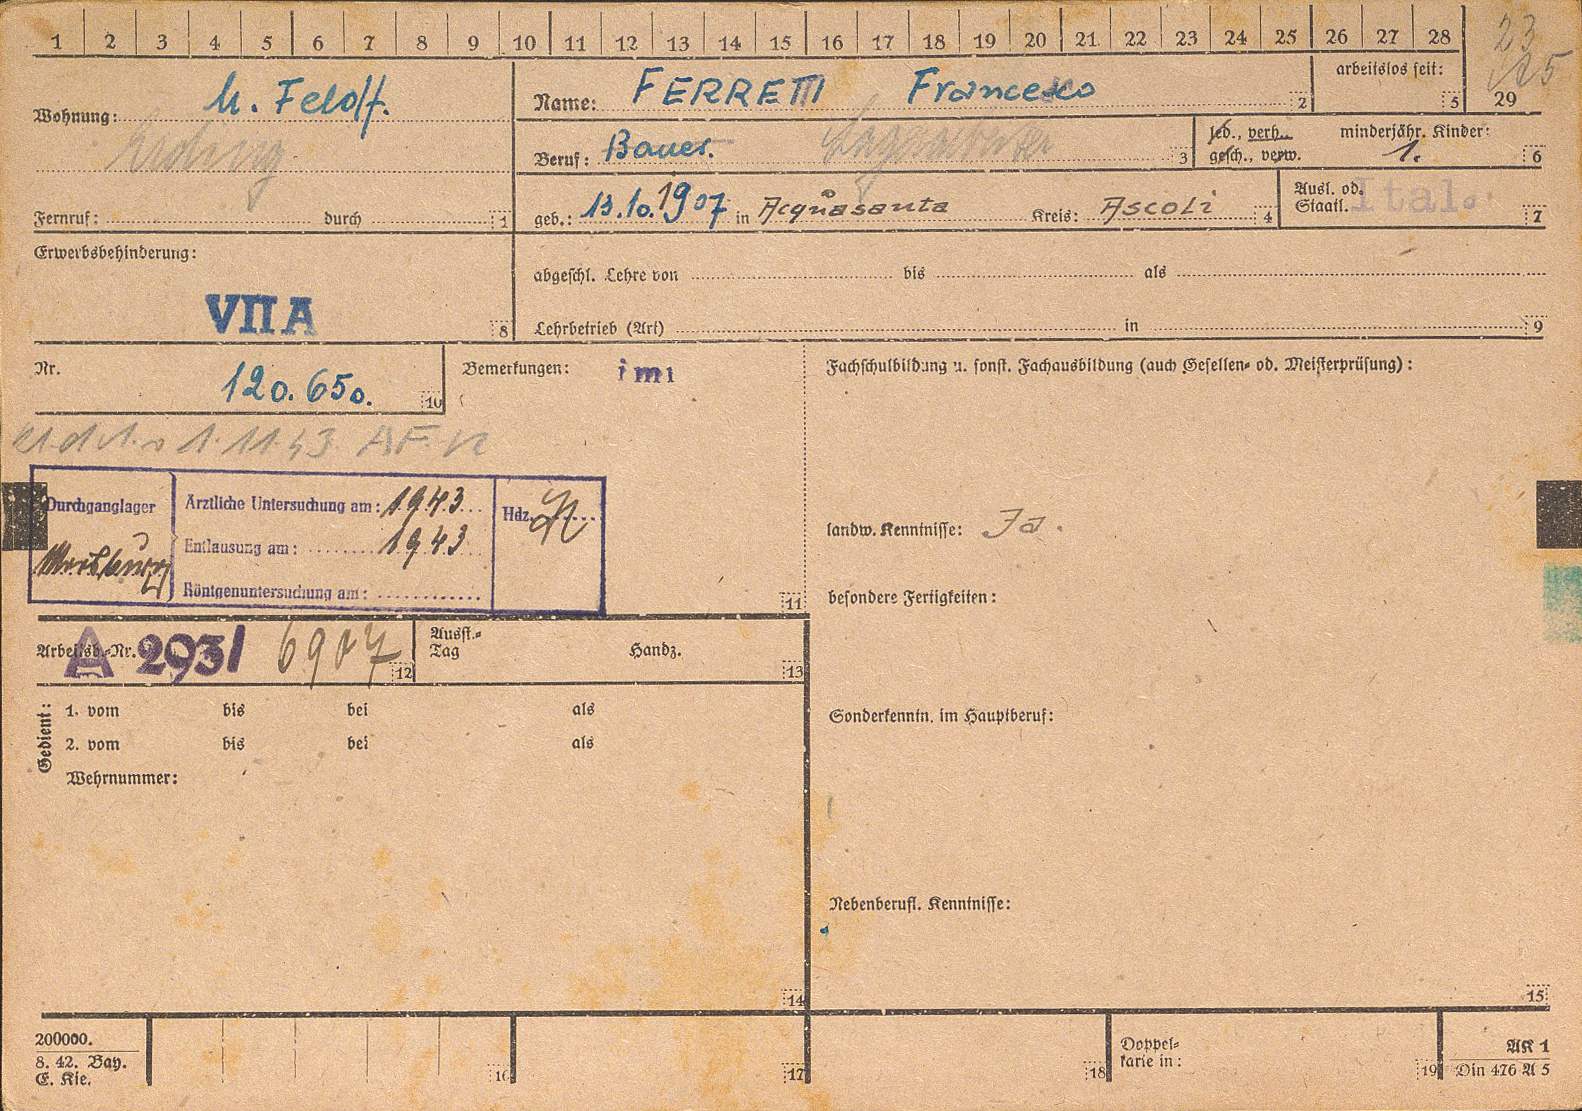 1 2 3 4 5 6 7 8 9 10 11 12 13 14 15 16 17 18 19 20 21 22 23 24 25 26 27 28
23
29
Wohnung: U. Feldff.
Erding
Fernruf: durch 1
Name: FERRETTI Francesco 2
arbeitslos seit: 5
Beruf: Bauer. 3
led., verh., gesch., verw.
minderjähr. Kinder: 1. 6
geb.: 13.10.1907 in Acquasanta Kreis: Ascoli 4
Ausl. od. Staatl. Ital. 7
Erwerbsbehinderung:
VII A 8
abgeschl. Lehre von bis als
Lehrbetrieb (Art) in 9
Nr. 120.650. 10
Bemerkungen: imi
Fachschulbildung u. sonst. Fachausbildung (auch Gesellen- od. Meisterprüfung):
1.11.43
Durchganglager
Ärztliche Untersuchung am: 1943
Entlausung am: 1943
Röntgenuntersuchung am:
Hdz.
11
landw. Kenntnisse: Ja.
besondere Fertigkeiten:
Arbeitsb.-Nr. A 293/ 6907 12
Ausst.-Tag Handz. 13
Gedient:
1. vom bis bei als
2. vom bis bei als
Wehrnummer:
Sonderkenntn. im Hauptberuf:
Nebenberufl. Kenntnisse:
14
15
200000.
8. 42. Bay.
E. Kie.
16
17
18
Doppel-
karte in: 19
AK 1
Din 476 A 5